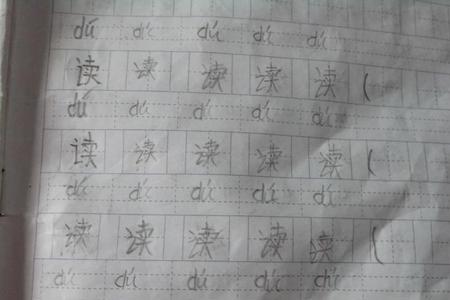 dú dú dú dú dú
读 读 读 读 读 (
dú dú dú dú dú
读 读 读 读 读 (
dú dú dú dú dú
读 读 读 读 读 (
dú dú dú dú dú